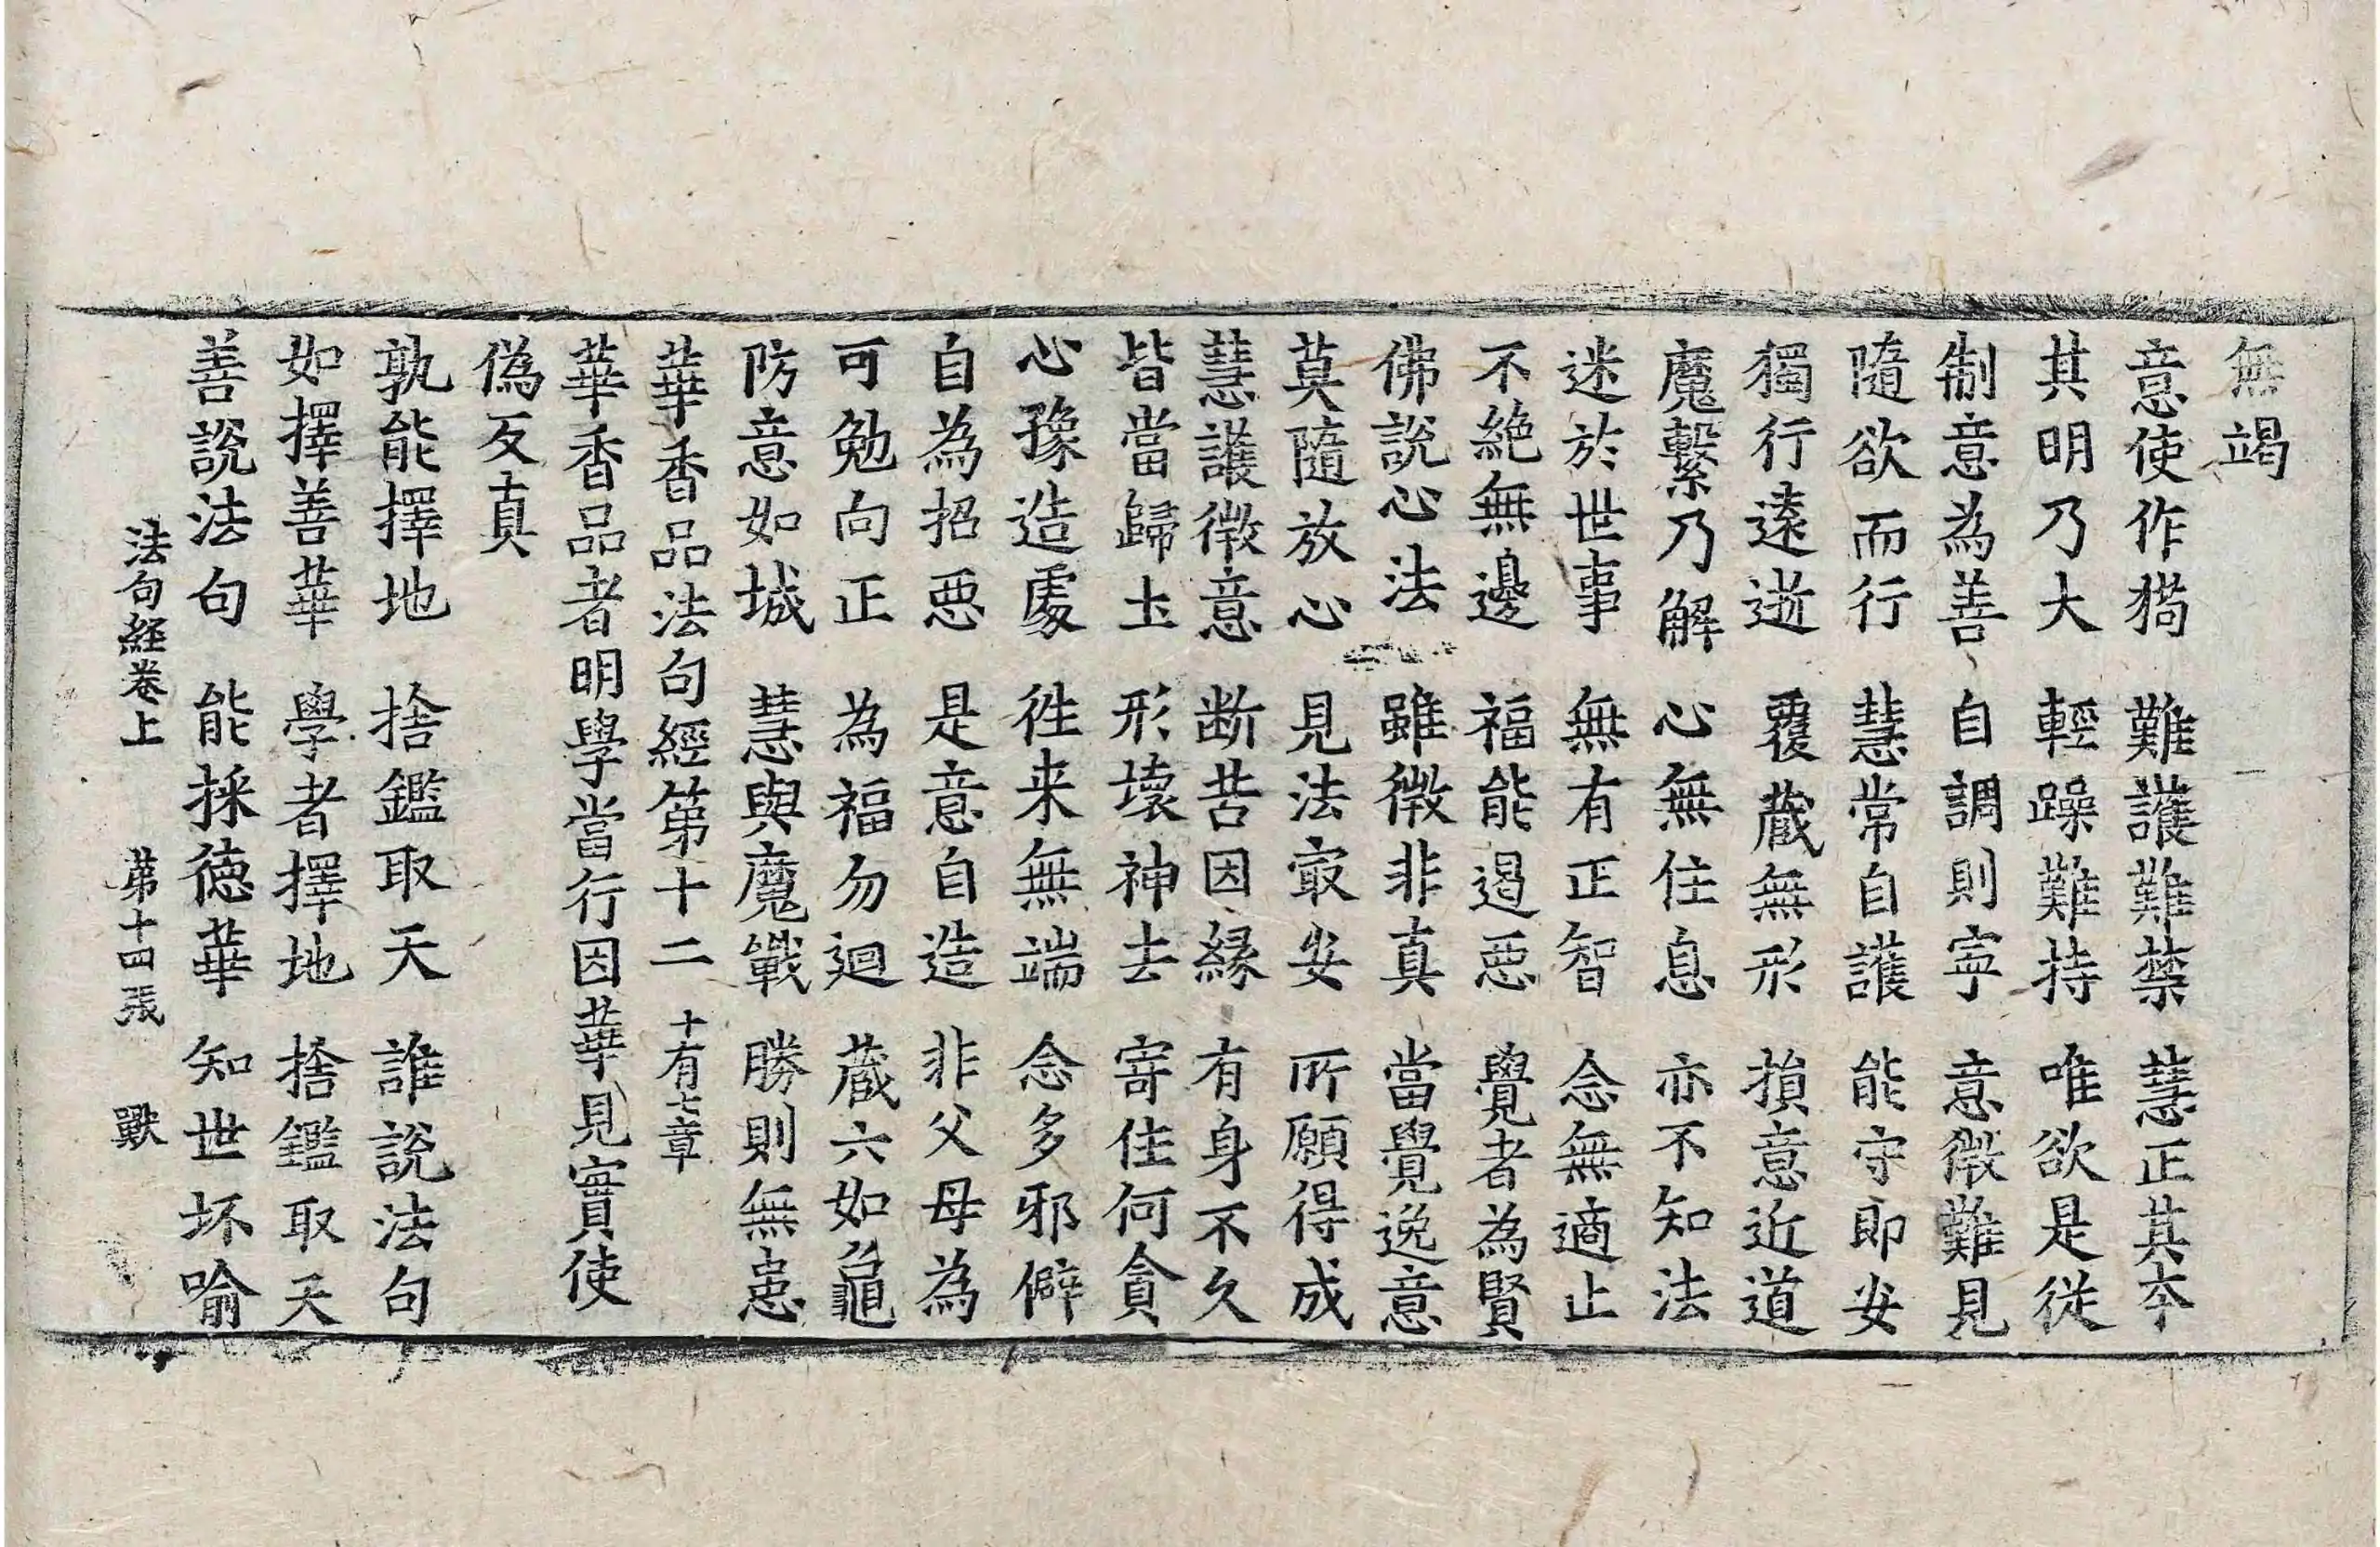 無竭
意使作㺃 難護難禁 慧正其本
其明乃大 輕躁難持 唯欲是從
制意為善 自調則寧 意微難見
隨欲而行 慧常自護 能守即安
獨行遠逝 覆藏無形 損意近道
魔繫乃解 心無住息 亦不知法
迷於世事 無有正智 念無適止
不絶無邊 福能遏惡 覺者為賢
佛說心法 雖微非真 當覺逸意
莫隨放心 見法最安 所願得成
慧護微意 断苦因縁 有身不久
皆當歸土 形壞神去 寄住何貪
心豫造處 徃来無端 念多邪僻
自為招惡 是意自造 非父母為
可勉向正 為福勿迴 蔵六如龜
防意如城 慧與魔戰 勝則無患
華香品法句經第十二 十有七章
華香品者明學當行因華見實使
偽反真
孰能擇地 捨鑑取天 誰說法句
如擇善華 學者擇地 捨鑑取天
善說法句 能採德華 知世坏喻
法句経卷上 苐十四張 獸